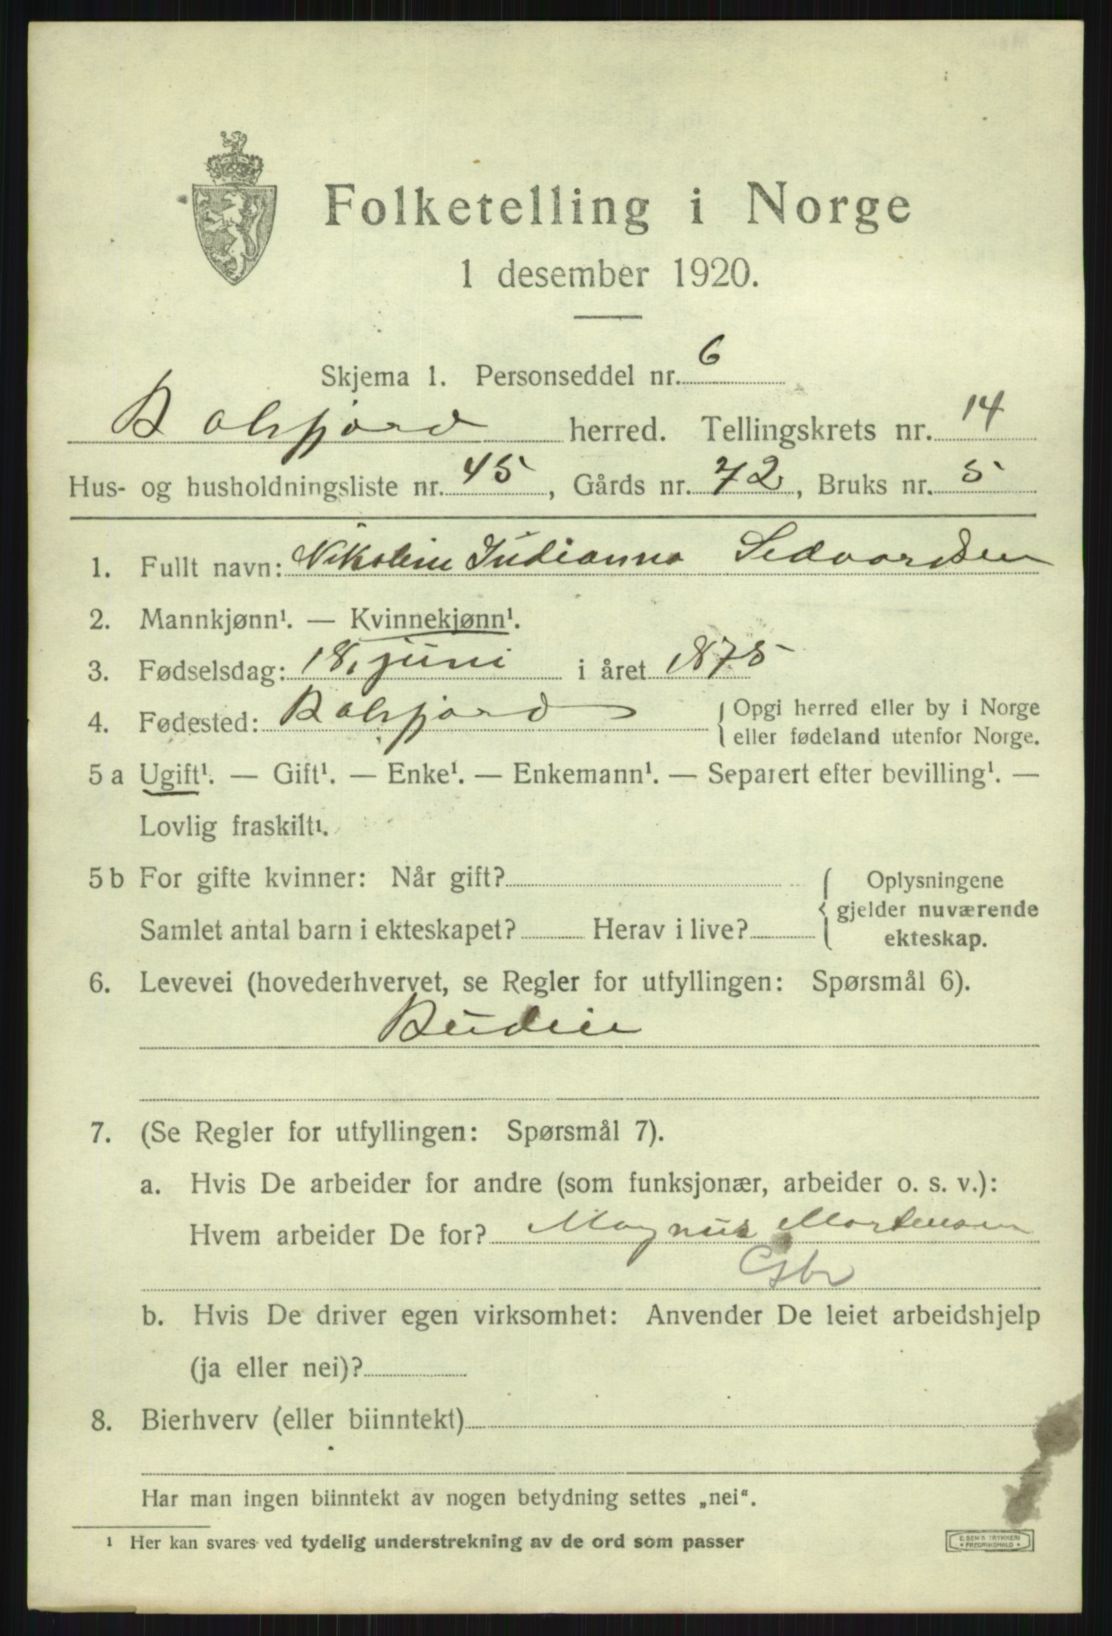 Folketelling i Norge
1 desember 1920.
Skjema 1. Personseddel nr. 6
Balsfjord herred. Tellingskrets nr. 14
Hus- og husholdningsliste nr. 45, Gårds nr. 72, Bruks nr. 5
1. Fullt navn: Nikoline Indianna Sedvardsen
2. Mannkjønn¹. — Kvinnekjønn¹.
3. Fødselsdag: 18. juni i året 1875
4. Fødested: Balsfjord { Opgi herred eller by i Norge
eller fødeland utenfor Norge.
5 a Ugift¹. — Gift¹. — Enke¹. — Enkemann¹. — Separert efter bevilling¹. —
Lovlig fraskilt¹.
5 b For gifte kvinner: Når gift? { Oplysningene
gjelder nuværende
Samlet antal barn i ekteskapet? Herav i live? ekteskap.
6. Levevei (hovederhvervet, se Regler for utfyllingen: Spørsmål 6).
Budeie
7. (Se Regler for utfyllingen: Spørsmål 7).
a. Hvis De arbeider for andre (som funksjonær, arbeider o. s. v.):
Hvem arbeider De for? Magnus Mortensen
Gbr
b. Hvis De driver egen virksomhet: Anvender De leiet arbeidshjelp
(ja eller nei)?
8. Bierhverv (eller biinntekt)
Har man ingen biinntekt av nogen betydning settes „nei“.
¹ Her kan svares ved tydelig understrekning av de ord som passer
E. SEM'S TRYKKERI
FREDRIKSHALD